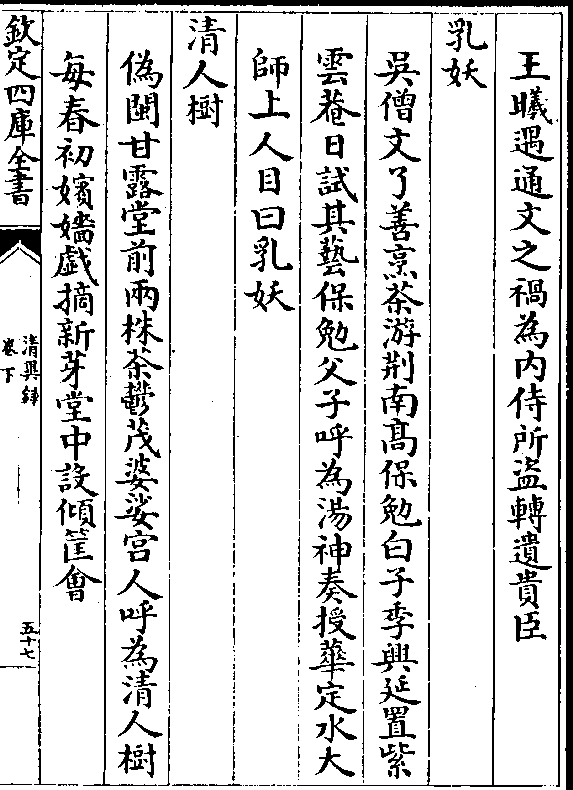 王曦遇通文之禍為内侍所盗轉遺貴臣
乳妖
吳僧文了善烹茶游荆南髙保勉白子季興延置紫
雲菴日試其藝保勉父子呼為湯神奏授華定水大
師上人目曰乳妖
清人樹
偽閩甘露堂前兩株茶鬱茂婆娑宫人呼為清人樹
每春初嬪嬙戲摘新芽堂中設傾筐㑹
欽定四庫全書
清異録
卷下
五十七